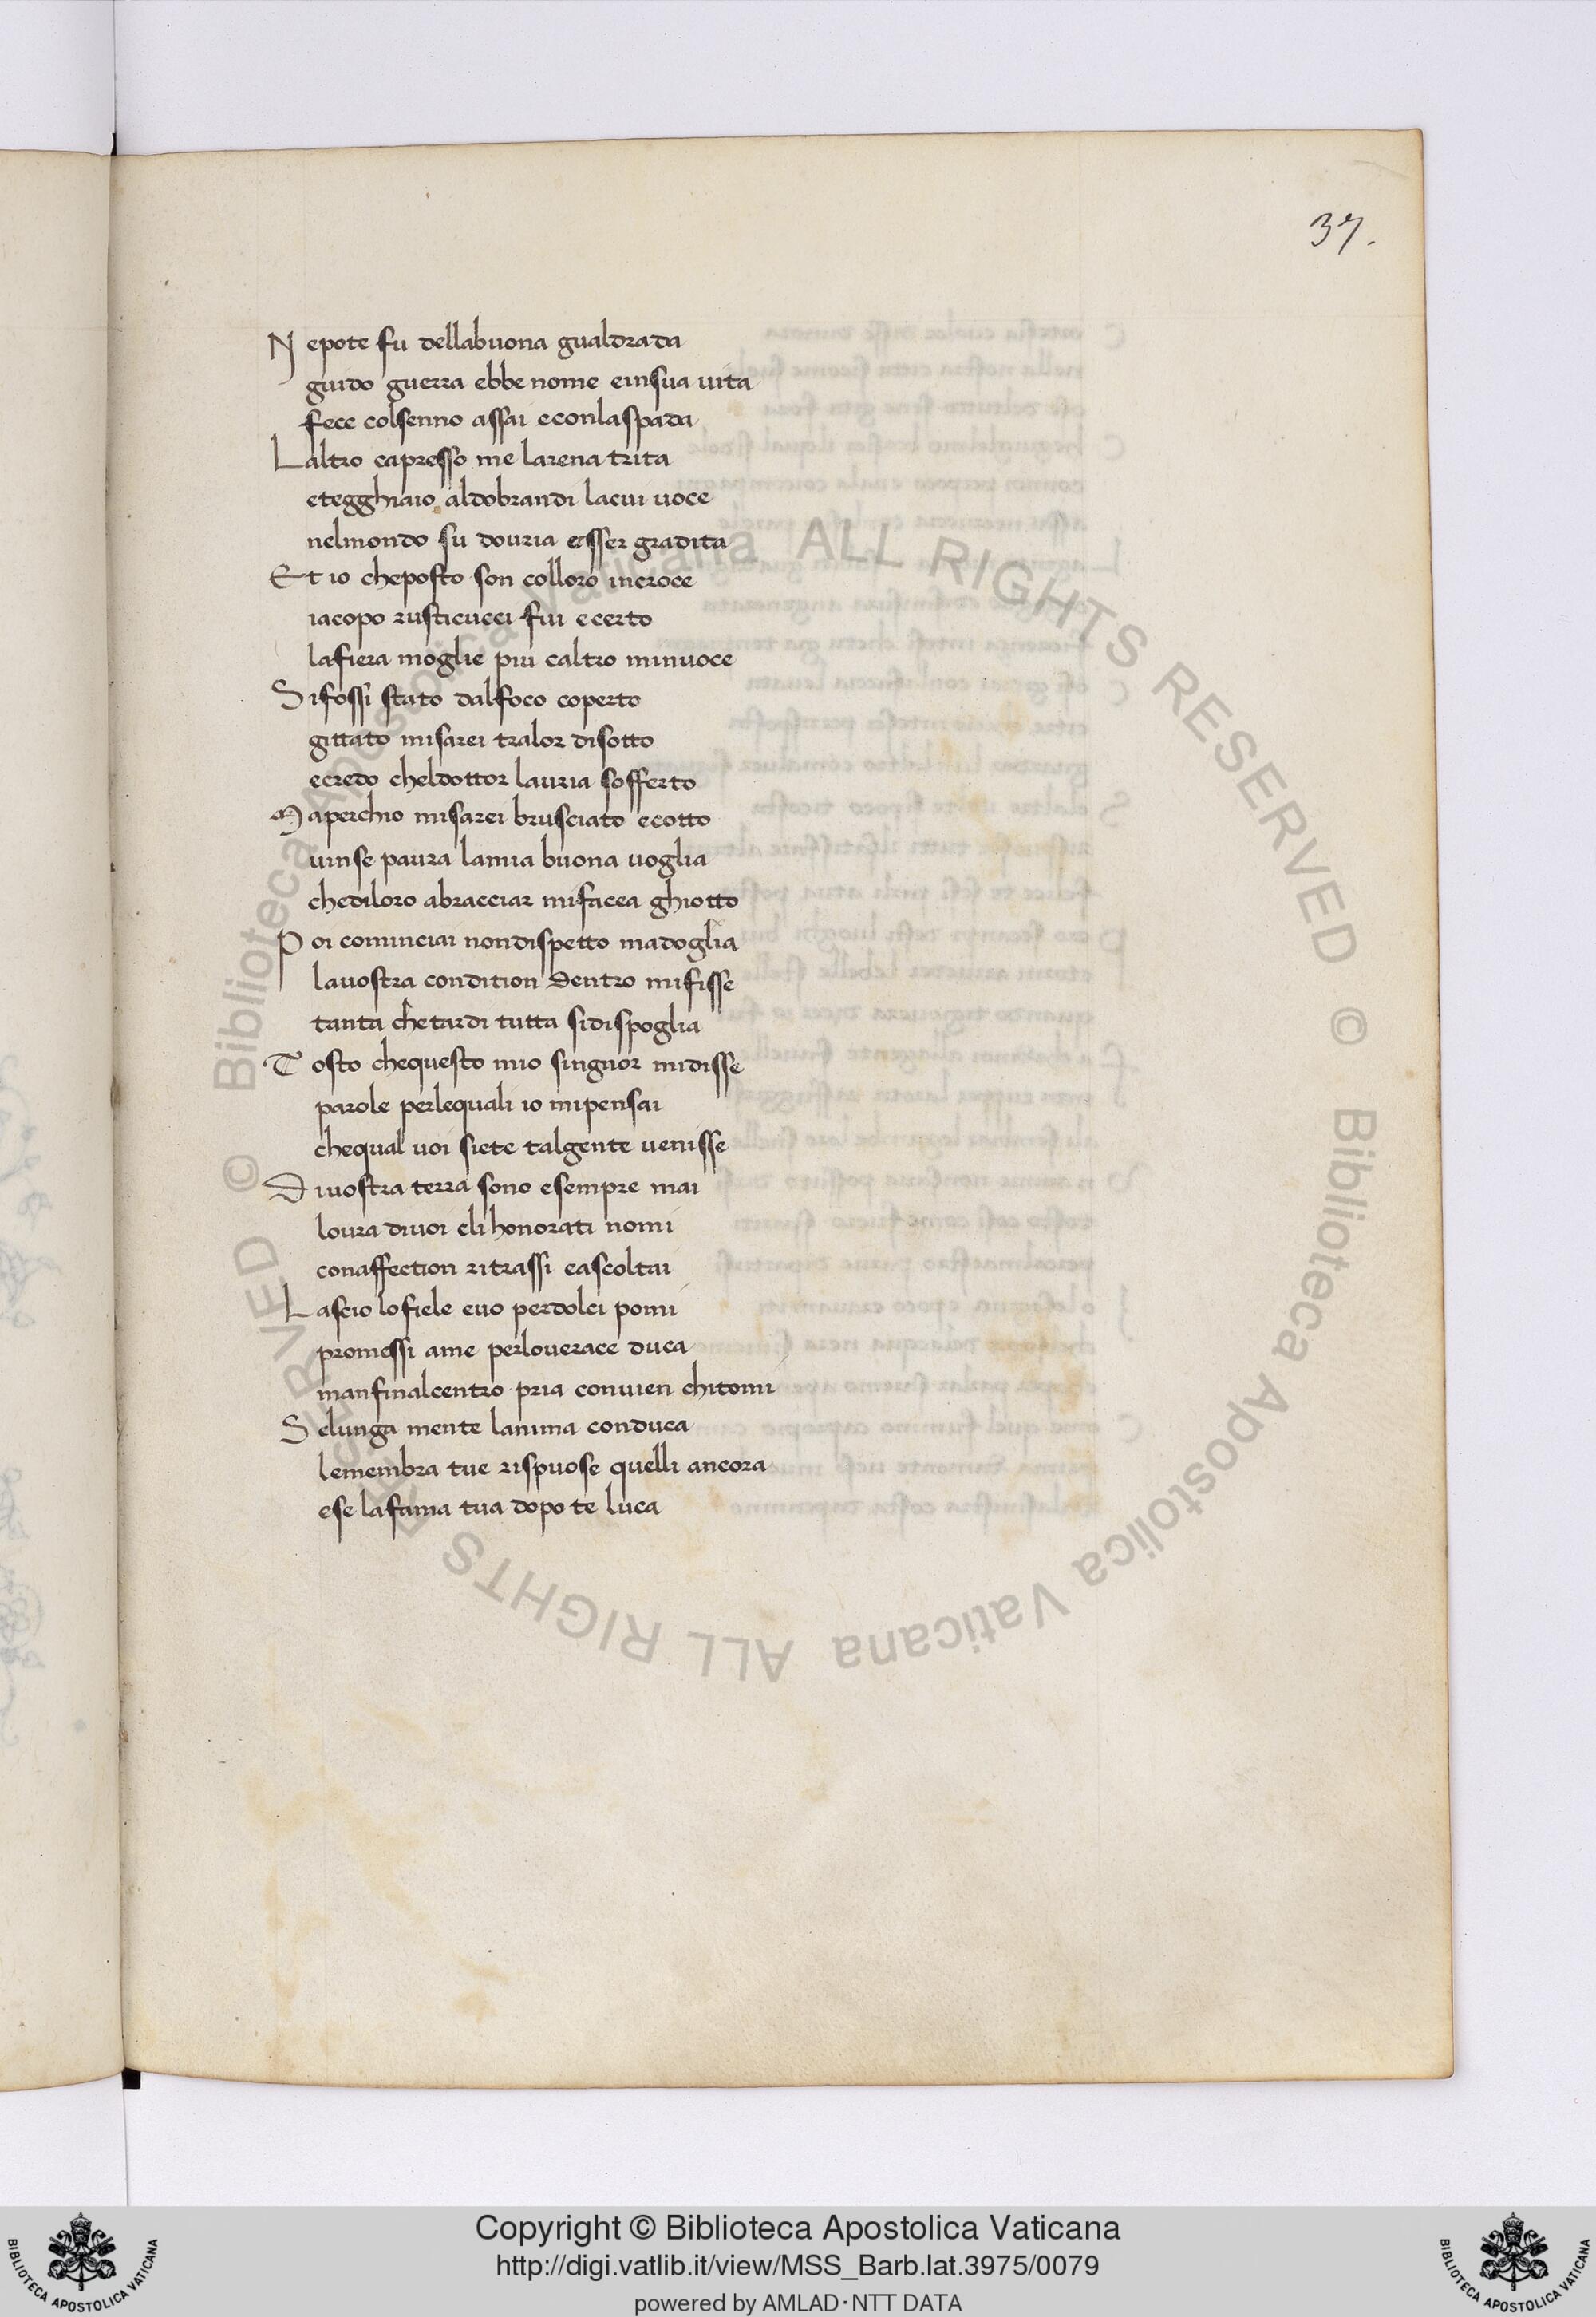 37.
N epote fu dellabuona gualdrada
guido guerra ebbe nome einsua uita
fece colsenno assai econlaspada
L altro capresso me larena trita
etegghiaio aldobrandi lacui uoce
nelmondo su douria esser gradita
E t io cheposto son colloro incroce
iacopo rusticucci fui ecerto
lafiera moglie piu caltro minuoce
S ifossi stato dalfoco coperto
gittato misarei tralor disotto
ecredo cheldottor lauria sofferto
M aperchio misarei brusciato ecotto
uinse paura lamia buona uoglia
chediloro abracciar mifacea ghiotto
P oi cominciai nondispetto madoglia
lauostra condition dentro mifisse
tanta chetardi tutta sidispoglia
T osto chequesto mio singnor midisse
parole perlequali io mipensai
chequal uoi siete talgente uenisse
D iuostra terra sono esempre mai
loura diuoi eli honorati nomi
conaffection ritrassi eascoltai
L ascio lofiele euo perdolci pomi
promessi ame perlouerace duca
manfinalcentro pria conuien chitomi
S elunga mente lanima conduca
lemembra tue rispuose quelli ancora
ese lafama tua dopo te luca
© Biblioteca Apostolica Vaticana ALL RIGHTS RESERVED
© Biblioteca Apostolica Vaticana ALL RIGHTS RESERVED
Copyright © Biblioteca Apostolica Vaticana
http://digi.vatlib.it/view/MSS_Barb.lat.3975/0079
powered by AMLAD·NTT DATA
BIBLIOTECA APOSTOLICA VATICANA
BIBLIOTECA APOSTOLICA VATICANA